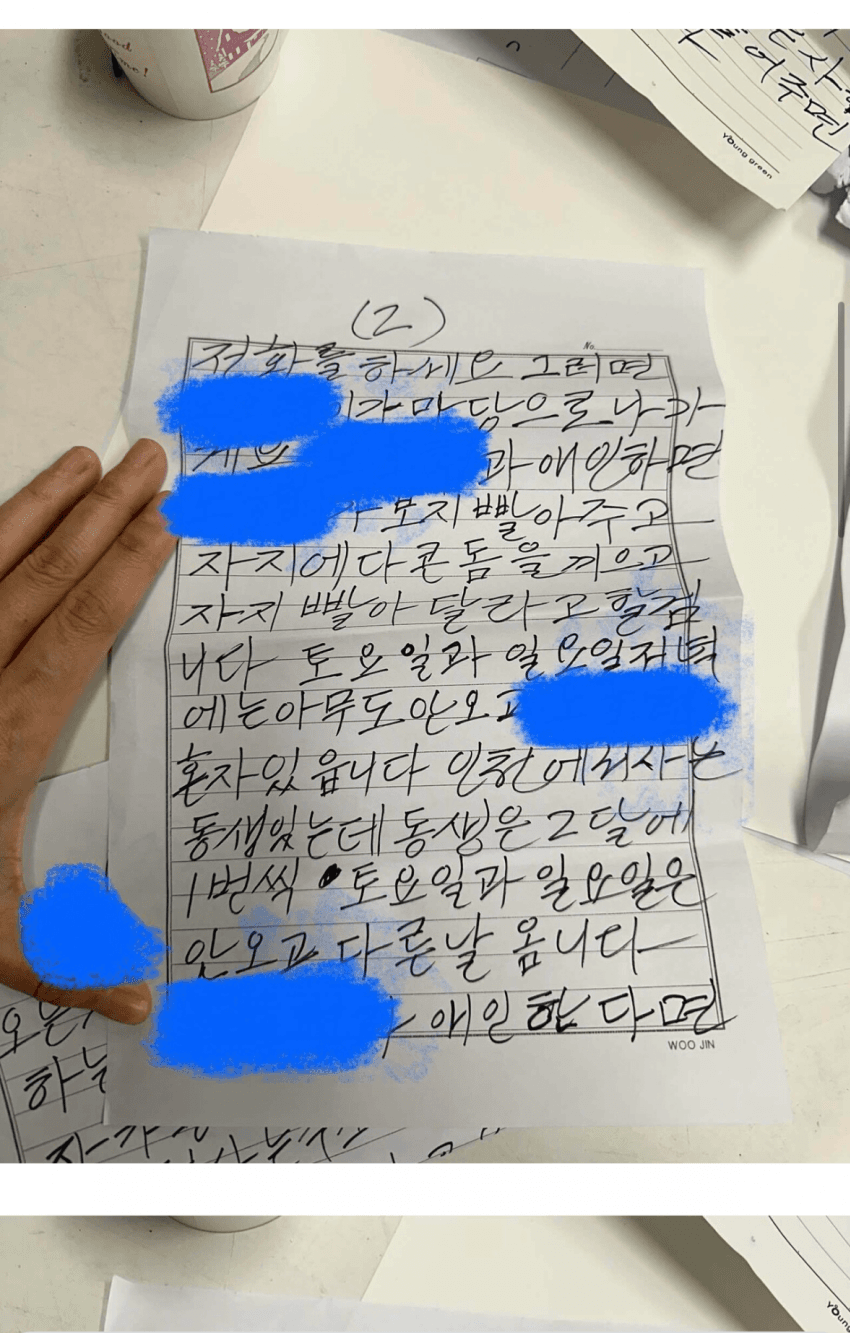 (2)
No.
저화를 하세요 그러면
이가 마당으로 나가
과 애인하면
보지 빨아주고
자지에다 콘돔을 끼우고
자지 빨아 달라고 할겁
니다 토요일과 일요일저녁
에는 아무도 안오고
혼자 있읍니다 인천에서 사는
동생있는데 동생은 2달에
1번씩 토요일과 일요일은
안오고 다른날 옵니다
애인 한다면
WOO JIN
어주면
Young green
하는